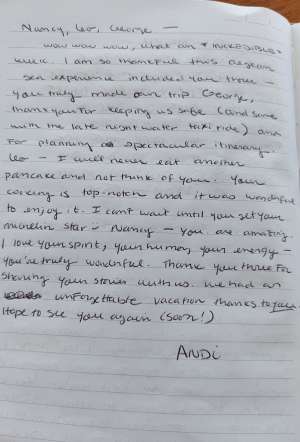 Nancy, Leo, George —
wow wow wow, what an *INCREDIBLE*
week. I am so thankful this aegean
sea experience included you three —
you truly made our trip. George,
thank you for keeping us safe (and sane
with the late night water taxi ride) and
for planning a spectacular itinerary.
Leo — I will never eat another
pancake and not think of you. Your
cooking is top-notch and it was wonderful
to enjoy it. I can't wait until you get your
michelin star - Nancy - you are amazing
I love your spirit, your humor, your energy -
you're truly wonderful. Thank you three for
sharing your stories with us. We had an
unforgettable vacation thanks to you
Hope to see you again (soon!)
ANDI